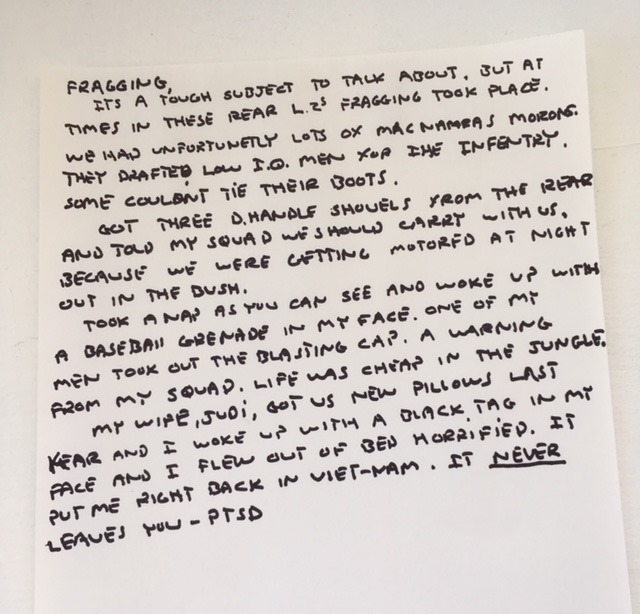 FRAGGING,
ITS A TOUGH SUBJECT TO TALK ABOUT. BUT AT
TIMES IN THESE REAR L.Zs FRAGGING TOOK PLACE.
WE HAD UNFORTUNETLY LOTS OX MACNAMRAS MORONS.
THEY DRAFTED LOW I.Q. MEN XOR THE INFENTRY.
SOME COULDNT TIE THEIR BOOTS.
GOT THREE D.HANDLE SHOVELS FROM THE REAR
AND TOLD MY SQUAD WE SHOULD CARRY WITH US.
BECAUSE WE WERE GETTING MOTORED AT NIGHT
OUT IN THE BUSH.
TOOK A NAP AS YOU CAN SEE AND WOKE UP WITH
A BASEBALL GRENADE IN MY FACE. ONE OF MY
MEN TOOK OUT THE BLASTING CAP. A WARNING
FROM MY SQUAD. LIFE WAS CHEAP IN THE JUNGLE.
MY WIFE, JUDI, GOT US NEW PILLOWS LAST
YEAR AND I WOKE UP WITH A BLACK TAG IN MY
FACE AND I FLEW OUT OF BED HORRIFIED. IT
PUT ME RIGHT BACK IN VIET-NAM. IT NEVER
LEAVES YOU - PTSD